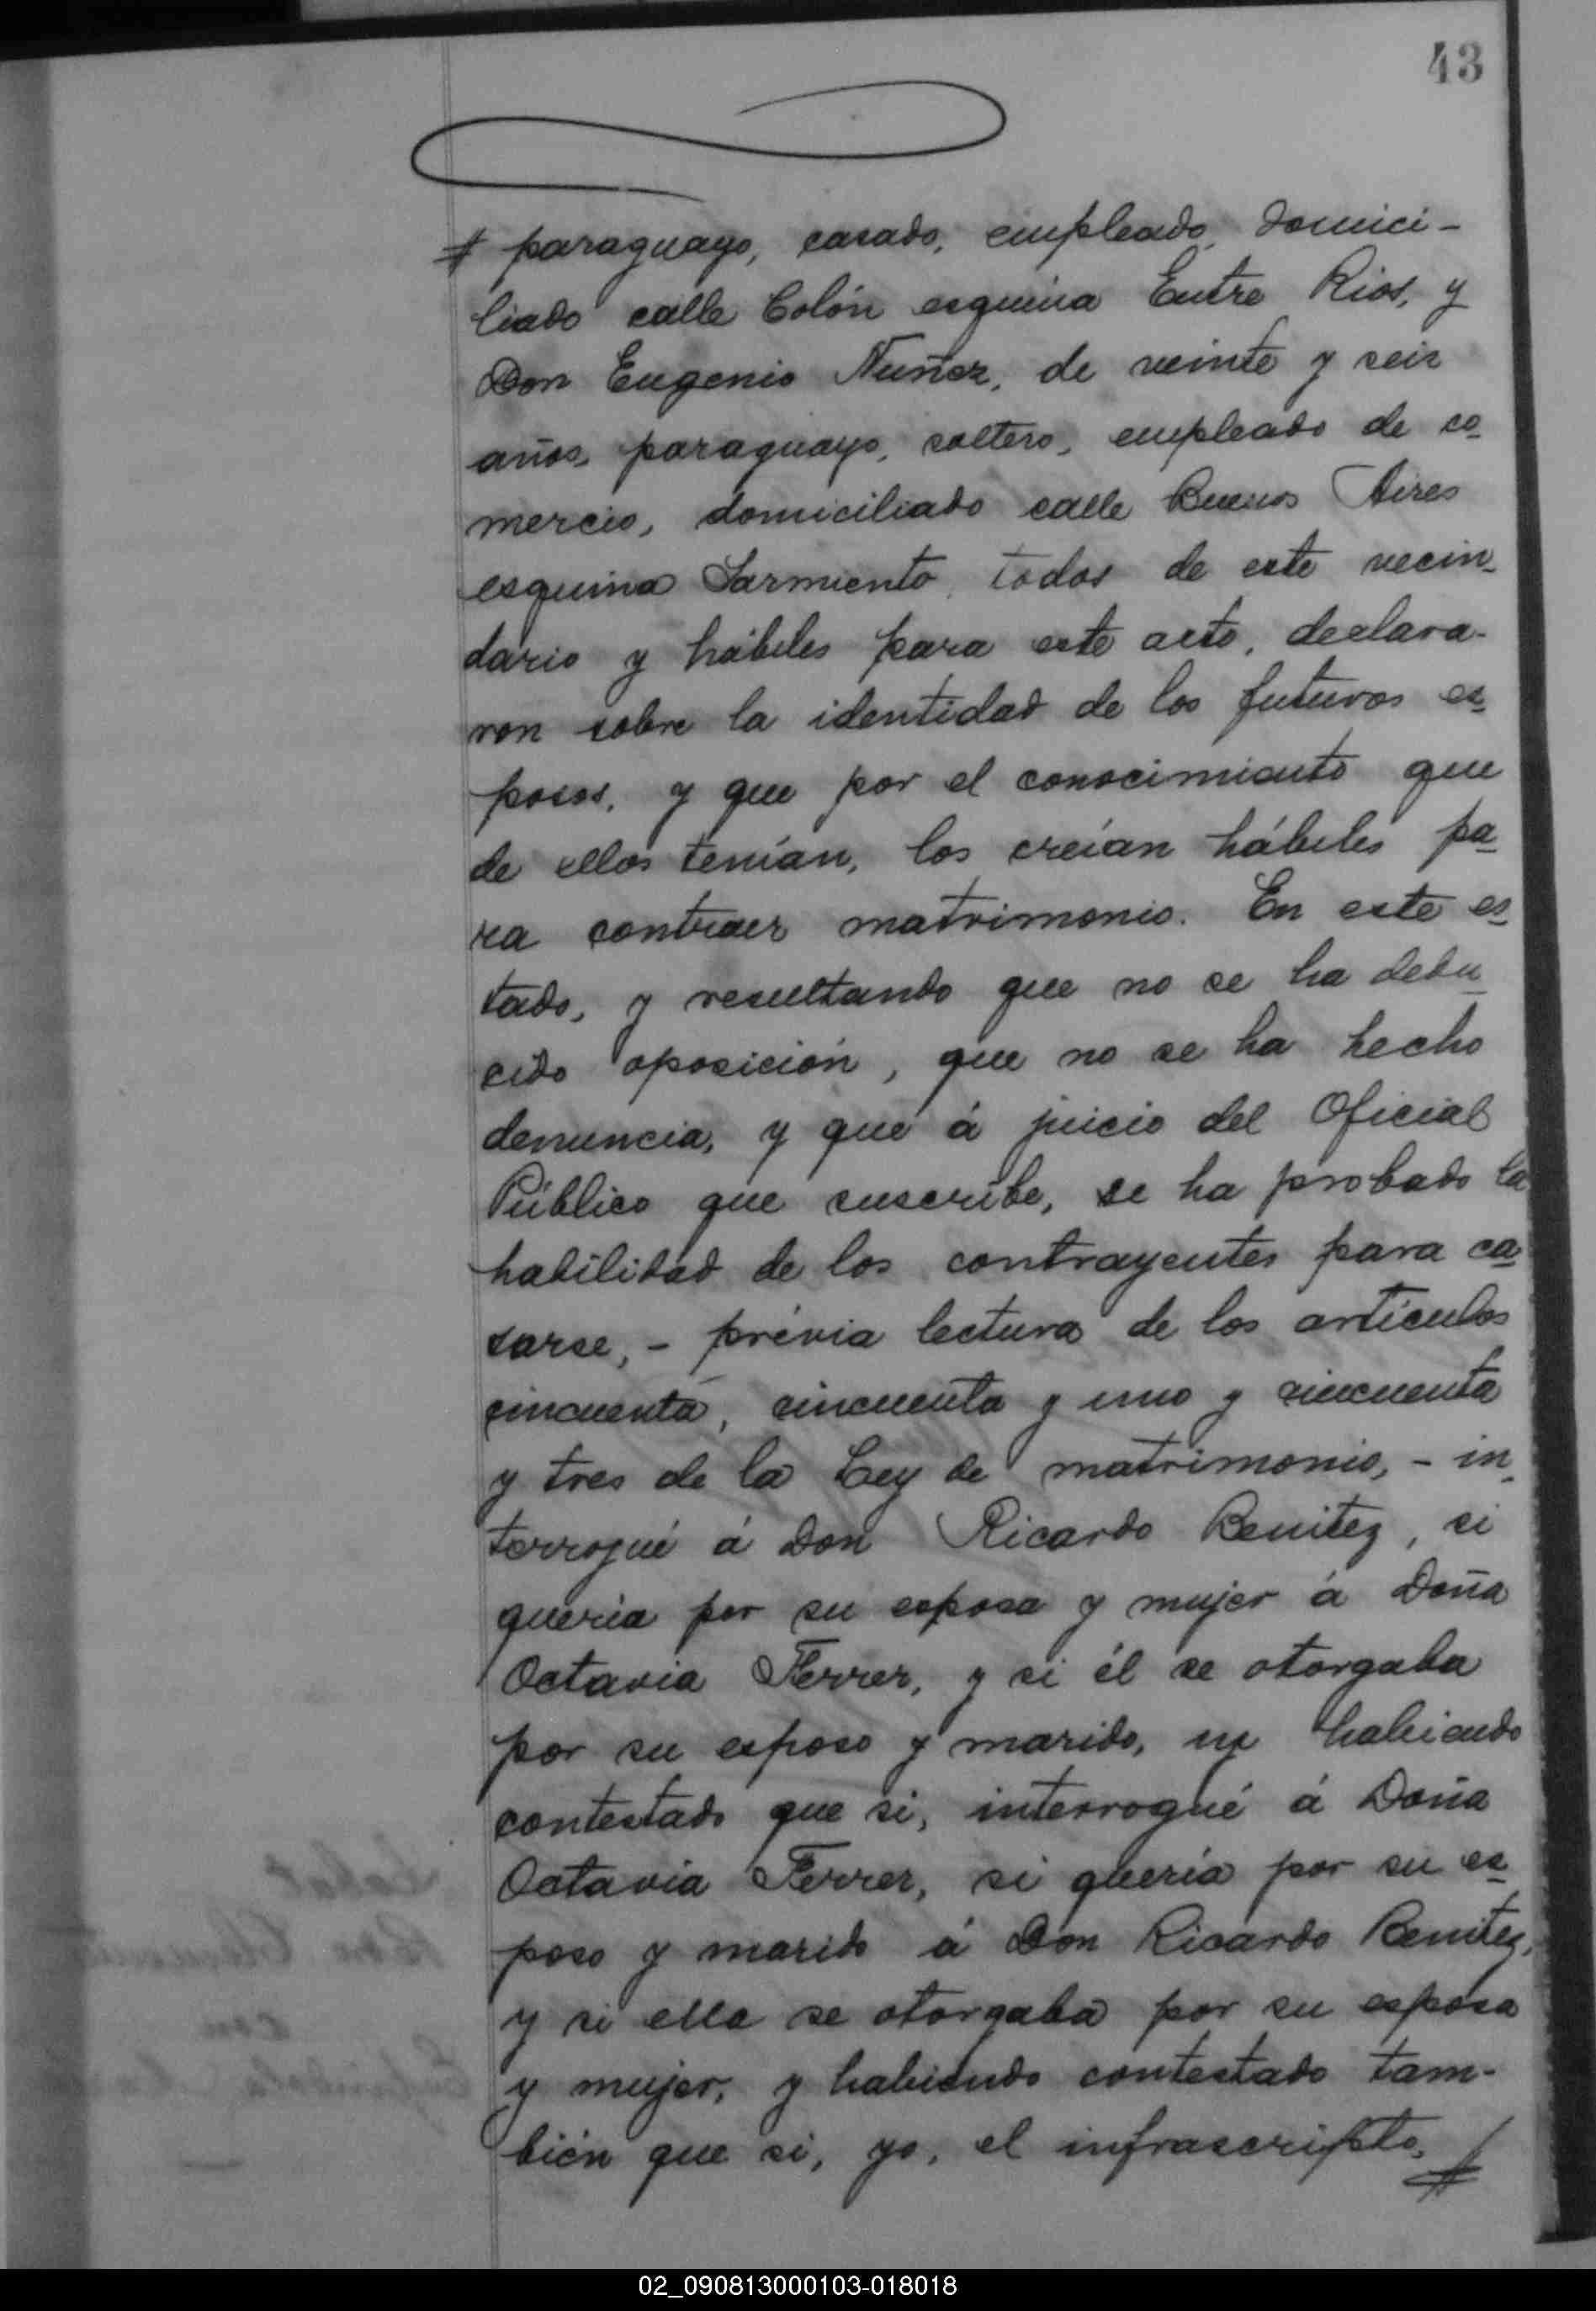 43
# paraguayo, casado, empleado, domici-
liado calle Colón esquina Entre Rios, y
Don Eugenio Nuñez, de veinte y seis
años, paraguayo, soltero, empleado de co-
mercio, domiciliado calle Buenos Aires
esquina Sarmiento, todos de este vecin-
dario y hábiles para este acto, declara-
ron sobre la identidad de los futuros es-
posos, y que por el conocimiento que
de ellos tenían, los creían hábiles pa-
ra contraer matrimonio. En este es-
tado, y resultando que no se ha dedu-
cido oposición, que no se ha hecho
denuncia, y que á juicio del Oficial
Público que suscribe, se ha probado la
habilidad de los contrayentes para ca-
sarse, - prévia lectura de los artículos
cincuenta, cincuenta y uno y cincuenta
y tres de la Ley de matrimonio, - in-
terrogué á Don Ricardo Benitez, si
quería por su esposa y mujer á Doña
Octavia Ferrer, y si él se otorgaba
por su esposo y marido, y habiendo
contestado que si, interrogué á Doña
Octavia Ferrer, si quería por su es-
poso y marido á Don Ricardo Benitez,
y si ella se otorgaba por su esposa
y mujer, y habiendo contestado tam-
bién que si, yo, el infrascripto, #
02_090813000103-018018